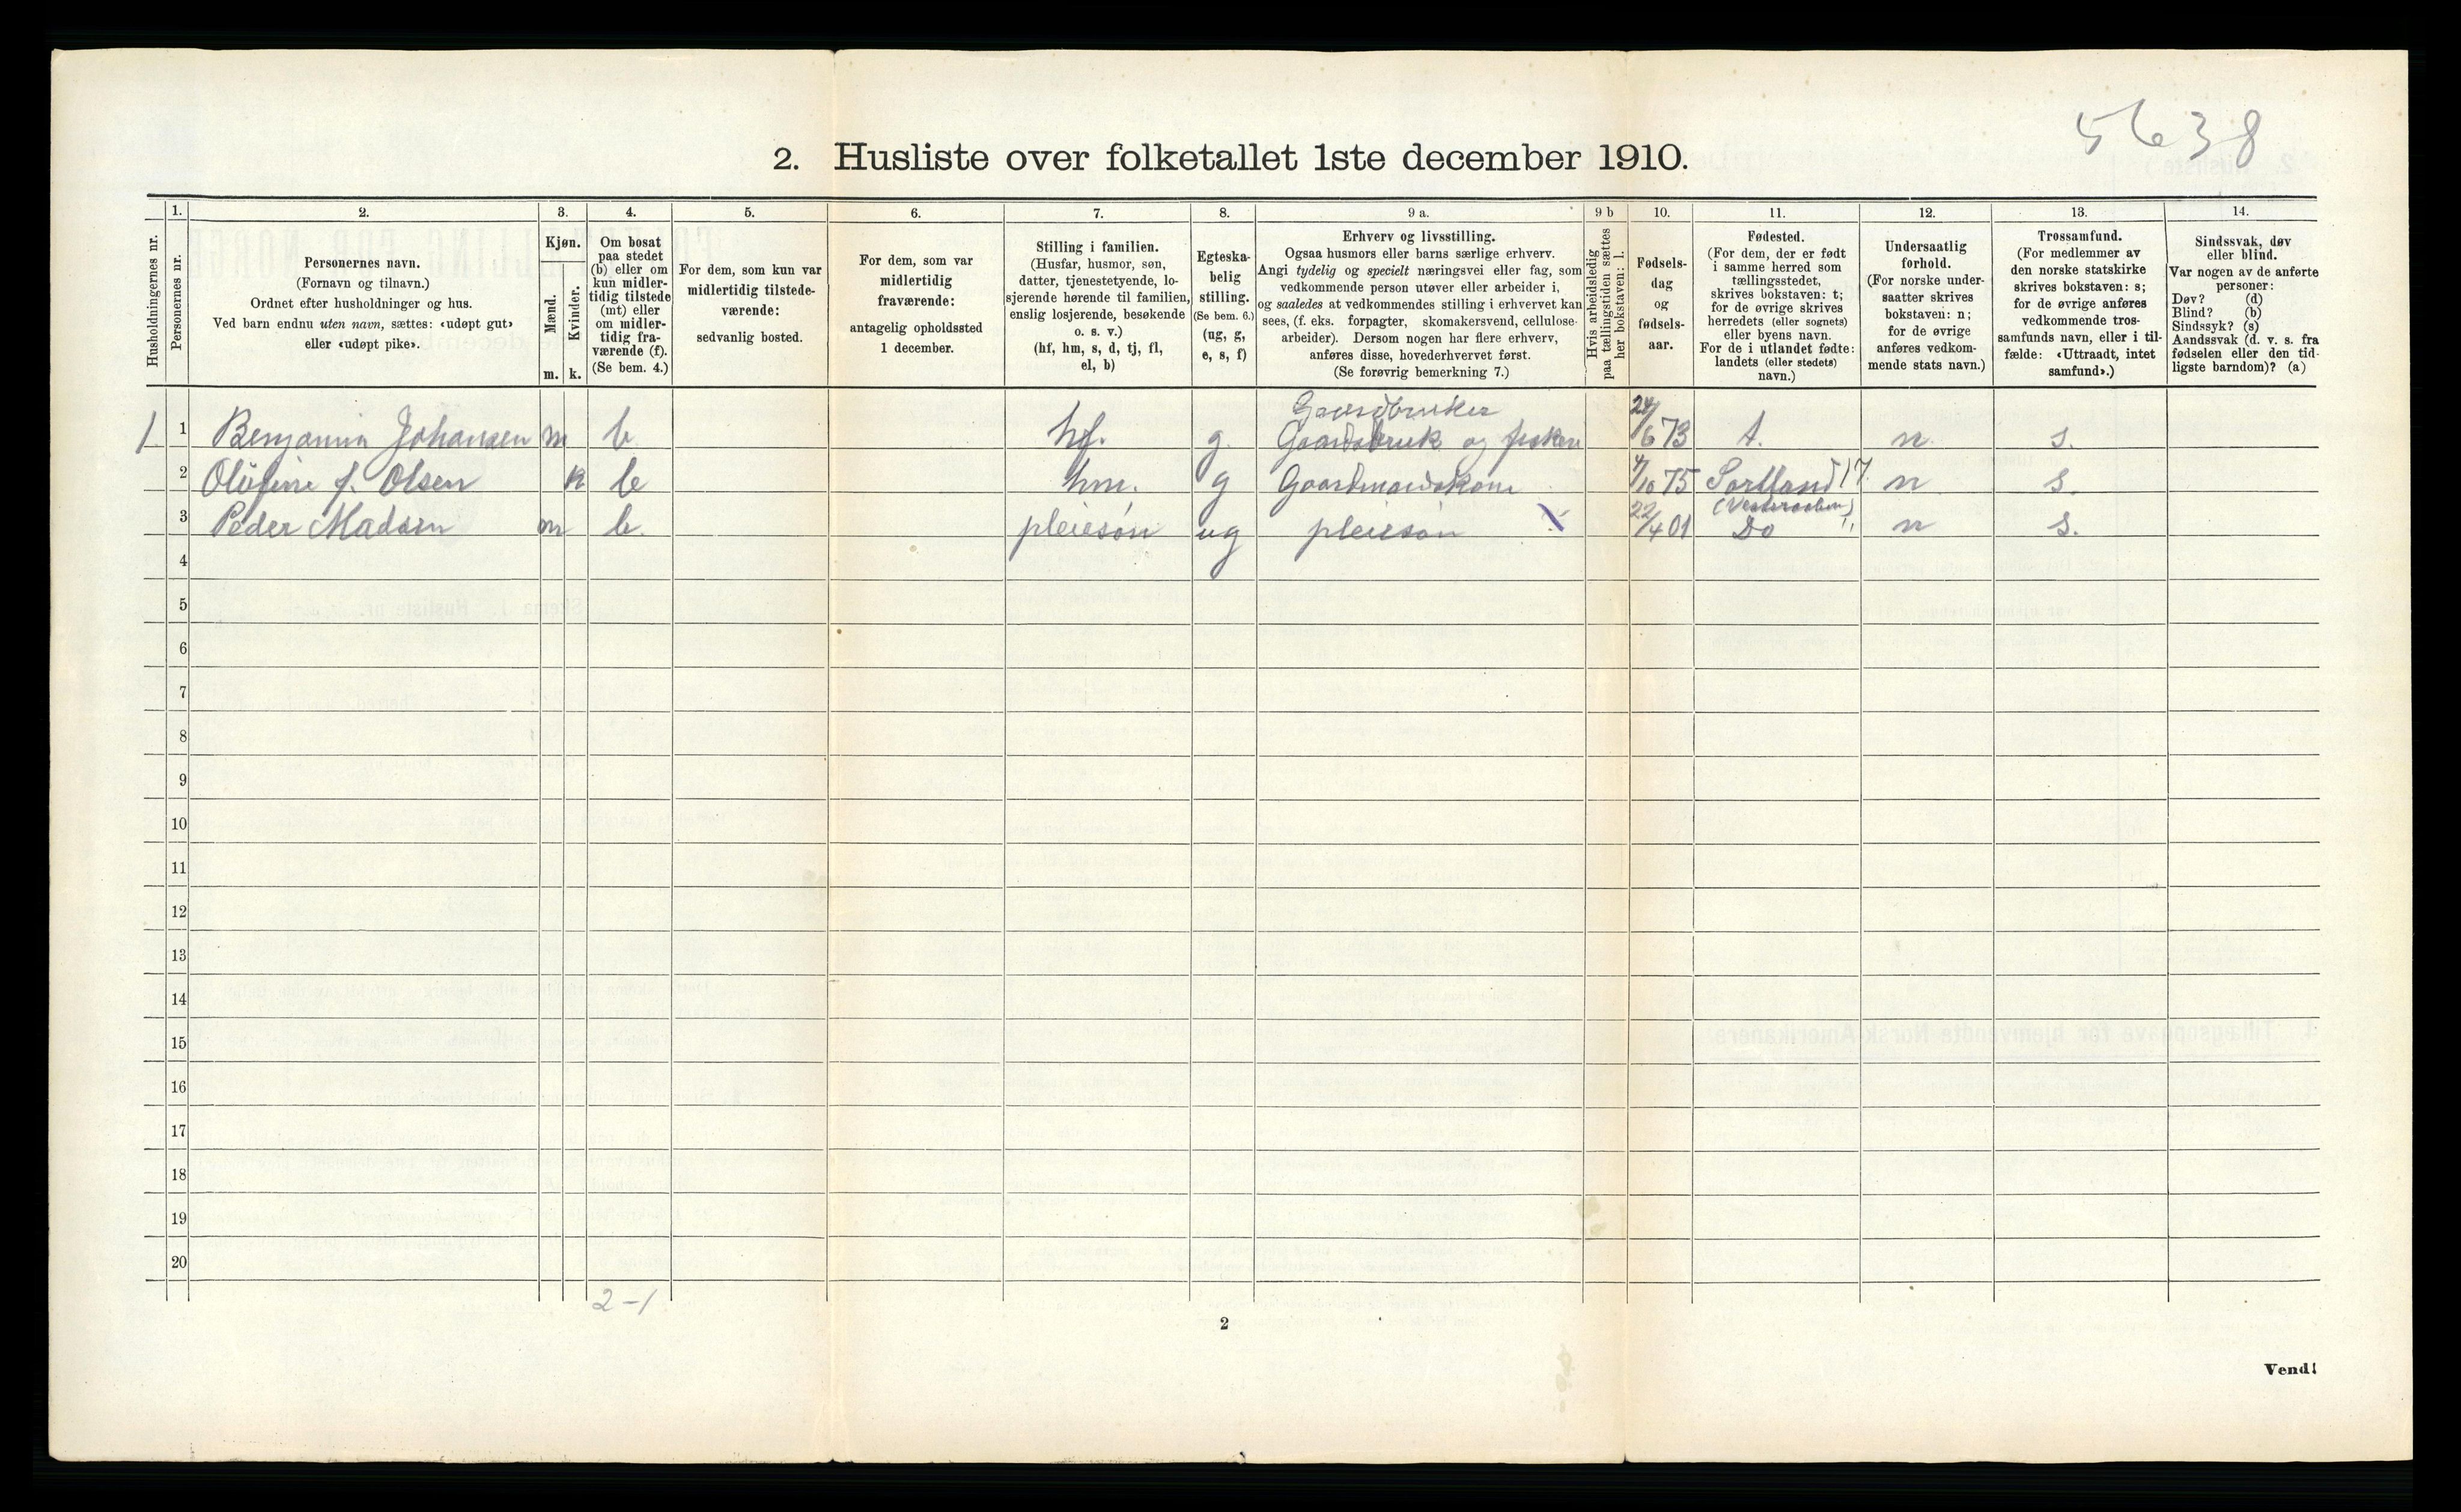 5638
2. Husliste over folketallet 1ste december 1910.
Husholdningernes nr.
1.
Personernes nr.
2.
Personernes navn.
(Fornavn og tilnavn.)
Ordnet efter husholdninger og hus.
Ved barn endnu uten navn, sættes: «udøpt gut»
eller «udøpt pike».
3.
Kjøn.
Mænd.
Kvinder.
m. k.
4.
Om bosat
paa stedet
(b) eller om
kun midler-
tidig tilstede
(mt) eller
om midler-
tidig fra-
værende (f).
(Se bem. 4.)
5.
For dem, som kun var
midlertidig tilstede-
værende:
sedvanlig bosted.
6.
For dem, som var
midlertidig
fraværende:
antagelig opholdssted
1 december.
7.
Stilling i familien.
(Husfar, husmor, søn,
datter, tjenestetyende, lo-
sjerende hørende til familien,
enslig losjerende, besøkende
o. s. v.)
(hf, hm, s, d, tj, fl,
el, b)
8.
Egteska-
belig
stilling.
(Se bem. 6.)
(ug, g,
e, s, f)
9 a.
Erhverv og livsstilling.
Ogsaa husmors eller barns særlige erhverv.
Angi tydelig og specielt næringsvei eller fag, som
vedkommende person utøver eller arbeider i,
og saaledes at vedkommendes stilling i erhvervet kan
sees, (f. eks. forpagter, skomakersvend, cellulose-
arbeider). Dersom nogen har flere erhverv,
anføres disse, hovederhvervet først.
(Se forøvrig bemerkning 7.)
9 b
Hvis arbeidsledig
paa tællingstiden sættes
her bokstaven: l.
10.
Fødsels-
dag
og
fødsels-
aar.
11.
Fødested.
(For dem, der er født
i samme herred som
tællingsstedet,
skrives bokstaven: t;
for de øvrige skrives
herredets (eller sognets)
eller byens navn.
For de i utlandet fødte:
landets (eller stedets)
navn.)
12.
Undersaatlig
forhold.
(For norske under-
saatter skrives
bokstaven: n;
for de øvrige
anføres vedkom-
mende stats navn.)
13.
Trossamfund.
(For medlemmer av
den norske statskirke
skrives bokstaven: s;
for de øvrige anføres
vedkommende tros-
samfunds navn, eller i til-
fælde: «Uttraadt, intet
samfund».)
14.
Sindssvak, døv
eller blind.
Var nogen av de anførte
personer:
Døv? (d)
Blind? (b)
Sindssyk? (s)
Aandssvak (d. v. s. fra
fødselen eller den tid-
ligste barndom)? (a)
Gaardbruker
1 1 Benjamin Johansen m b hf. g. Gaardsbruk og fisker 24/6 73 t. n. s.
2 Olufine J. Olsen k b hm. g Gaardmandskone 4/10 75 Sortland 17 n s.
(Vesteraalen)
3 Peder Madsen m b. pleiesøn ug pleiesøn 22/4 01 Do " n s.
4
5
6
7
8
9
10
11
12
13
14
15
16
17
18
19
20
2-1
2
Vend!